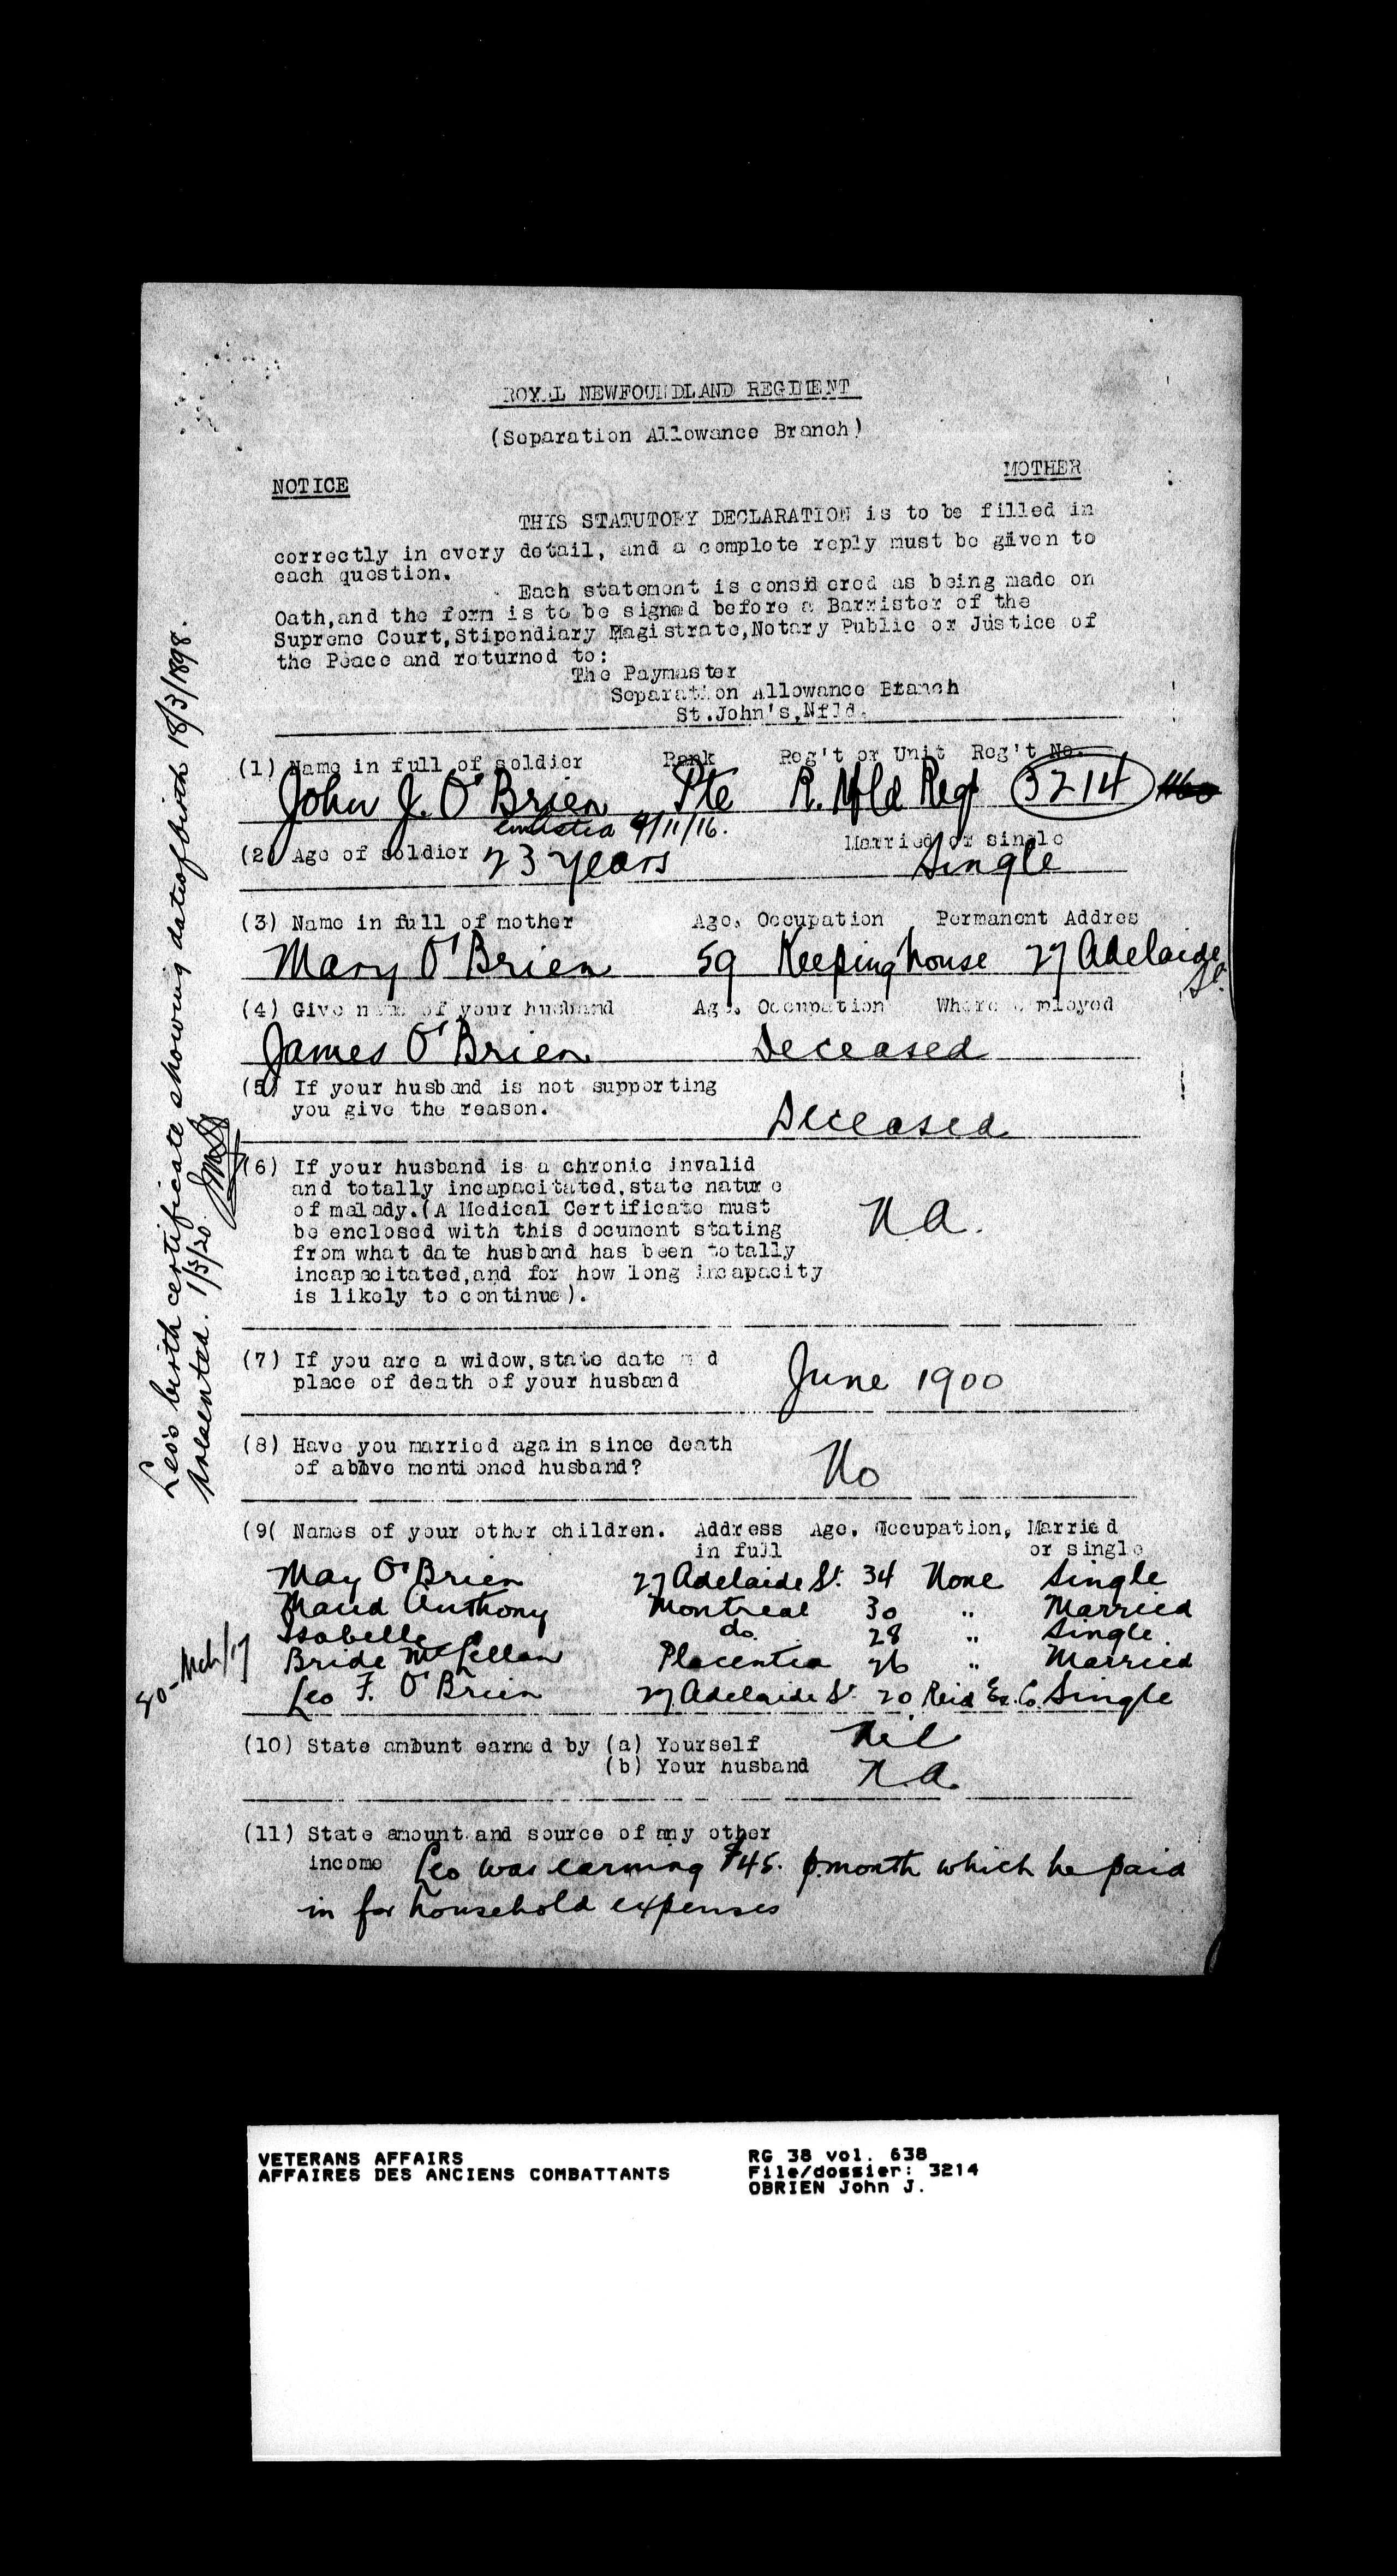 ROYAL NEWFOUNDLAND REGIMENT
(Separation Allowance Branch)
MOTHER
NOTICE
THIS STATUTORY DECLARATION is to be filled in
correctly in every detail, and a complete reply must be given to
each question.
Each statement is considered as being made on
Oath,and the form is to be signed before a Barrister of the
Supreme Court,Stipendiary Magistrate,Notary Public or Justice of
the Peace and returned to:
The Paymaster
Separation Allowance Branch
St.John's,Nfld.
(1) Name in full of soldier Rank Reg't or Unit Reg't No.
John J. O'Brien Pte R. Nfld Regt 3214
enlisted 9/11/16.
(2) Age of soldier 23 years Married or single Single
(3) Name in full of mother Age, Occupation Permanent Addres
Mary O'Brien 59 Keeping house 27 Adelaide St.
(4) Give name of your husband Age, Occupation Where employed
James O'Brien Deceased
(5) If your husband is not supporting
you give the reason. Deceased
(6) If your husband is a chronic invalid
and totally incapacitated,state nature
of malady.(A Medical Certificate must
be enclosed with this document stating
from what date husband has been totally
incapacitated,and for how long incapacity
is likely to continue).
N.A.
(7) If you are a widow,state date and
place of death of your husband June 1900
(8) Have you married again since death
of above mentioned husband? No
(9( Names of your other children. Address Age, Occupation, Married
in full or single
May O'Brien 27 Adelaide St. 34 None Single
Maud Anthony Montreal 30 " Married
Isabelle do. 28 " Single.
Bride McLellan Placentia 26 " Married
Leo F. O'Brien 27 Adelaide St 20 Reid Ex. Co. Single
(10) State amount earned by (a) Yourself Nil
(b) Your husband N.A.
(11) State amount and source of any other
income Leo was earning $45. p.month which he paid
in for household expenses
Leo's birth certificate showing date of birth 18/3/1898.
presented. 1/3/20.
Mch/17
VETERANS AFFAIRS
AFFAIRES DES ANCIENS COMBATTANTS
RG 38 vol. 638
File/dossier: 3214
OBRIEN John J.